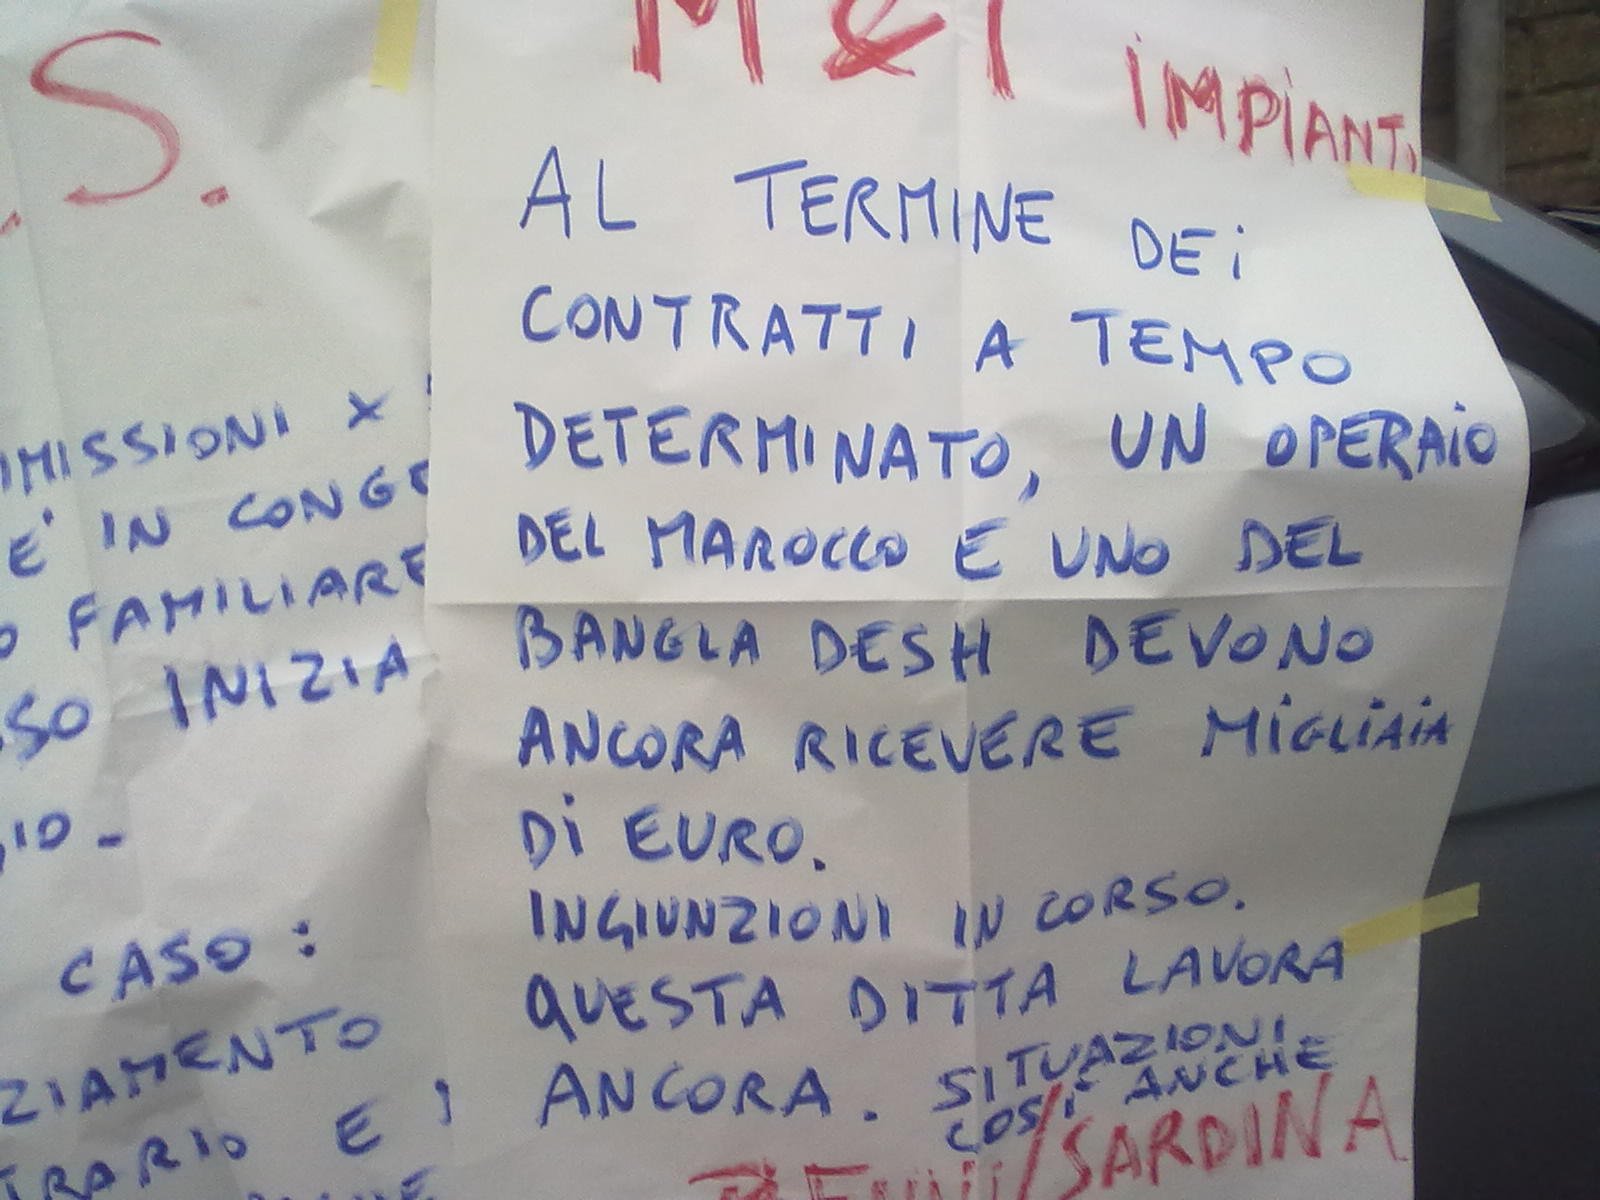 S.
IMISSIONI X
E' IN CONGE
O FAMILIARE
SO INIZIA
IO -
CASO:
ZIAMENTO
TRARIO E'
M & I IMPIANTI
AL TERMINE DEI
CONTRATTI A TEMPO
DETERMINATO, UN OPERAIO
DEL MAROCCO E UNO DEL
BANGLA DESH DEVONO
ANCORA RICEVERE MIGLIAIA
DI EURO.
INGIUNZIONI IN CORSO.
QUESTA DITTA LAVORA
ANCORA. SITUAZIONI
COSI' ANCHE
/SARDINA